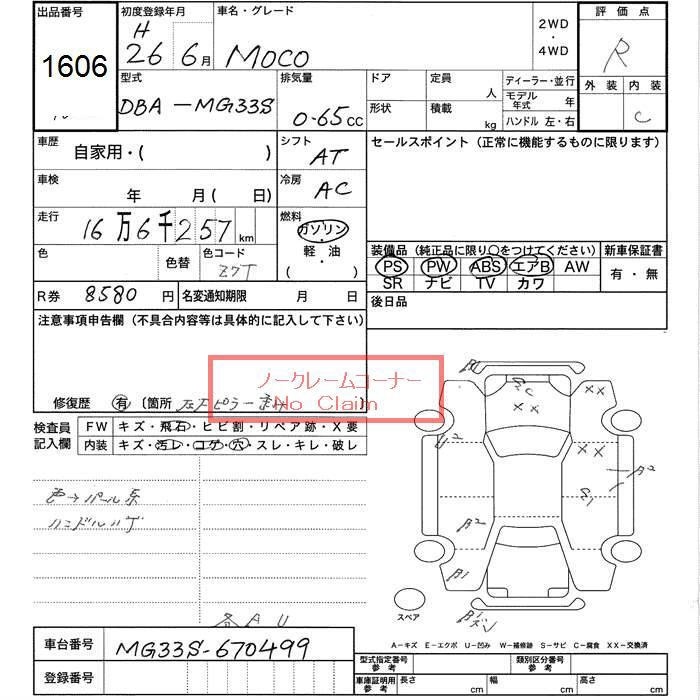 出品番号
1606
初度登録年月
H
26 6月
車名・グレード
MOCO
2WD
・
4WD
評価点
R
外装 内装
C
型式
DBA-MG33S
排気量
0.65cc
ドア
形状
定員 人
積載 kg
ディーラー・並行
モデル年式 年
ハンドル 左・右
車歴
自家用・( )
シフト
AT
セールスポイント(正常に機能するものに限ります)
車検
年 月(日)
冷房
AC
走行
16万6千257km
燃料
ガソリン
・
軽・油
( )
色
色替
色コード
Z7T
装備品(純正品に限り○をつけてください)
新車保証書
PS PW ABS エアB AW
SR ナビ TV カワ
有・無
R券 8580円
名変通知期限 月 日
後日品
注意事項申告欄(不具合内容等は具体的に記入して下さい)
ノークレームコーナー
No Claim
修復歴 有 〔箇所
検査員
記入欄
FW キズ・飛石・ヒビ割・リペア跡・X要
内装 キズ・汚レ・コゲ・穴・スレ・キレ・破レ
色→パール系
ハンドルハゲ
B1
XX
XX
U2
XX
B2
B2
B1
スペア
A-キズ E-エクボ U-凹み W-補修跡 S-サビ C-腐食 XX-交換済
車台番号 MG33S-670499
登録番号
型式指定番号
参考
類別区分番号
参考
車庫証明用
参考
長さ cm 幅 cm 高さ cm